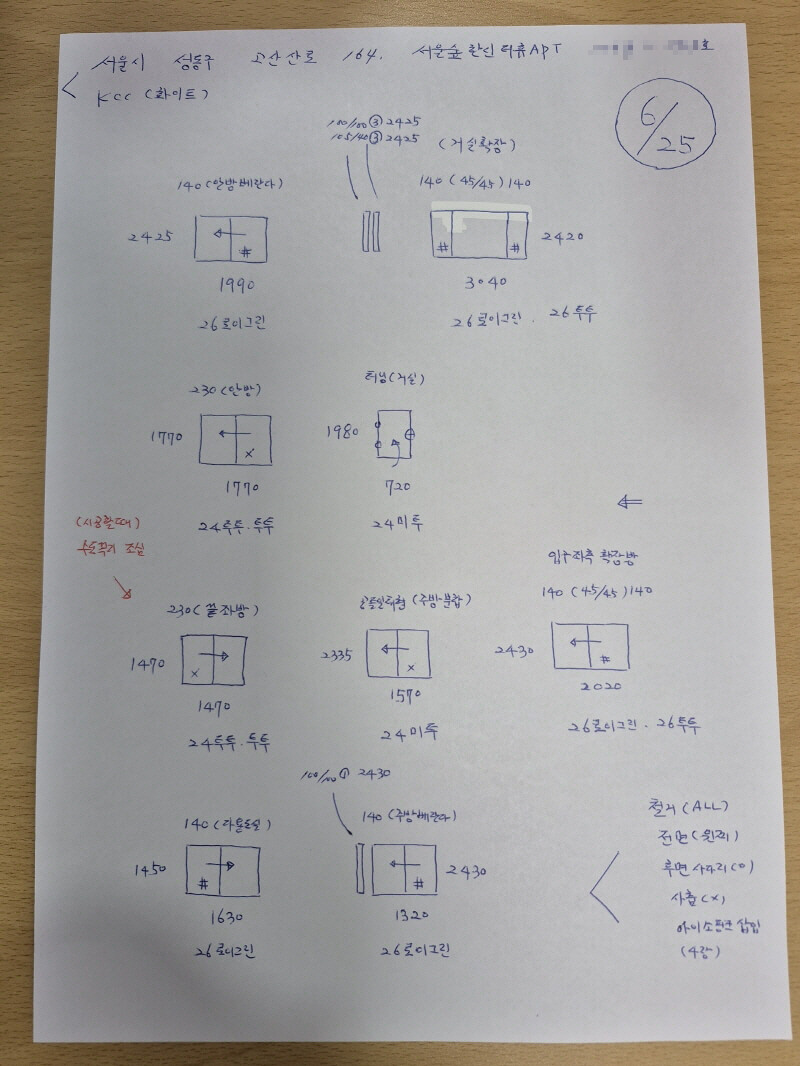 서울시 성동구 고산자로 164. 서울숲한신더휴APT 호
KCC (화이트)
6/25
100/100 ③ 2425
105/40 ③ 2425
(거실확장)
140 (안방베란다)
140 (45/45) 140
2425
#
1990
26로이그린
# #
2420
3040
26로이그린. 26투투
230 (안방)
1770
x
1770
24투투.투투
터닝(거실)
1980
720
24미투
(시공할때)
수도꼭지 조심
230(끝좌방)
1470
x
1470
24투투.투투
(주방분합)
2335
x
1570
24미투
입구좌측 확장방
140 (45/45) 140
2430
#
2020
26로이그린. 26투투
100/100 ① 2430
140 (다용도실)
1450
#
1630
26로이그린
140 (주방베란다)
#
2430
1320
26로이그린
철거 (ALL)
전면 (윈찌)
후면 사다리 (O)
사춤 (x)
아이소핑크 삽입
(4랑)